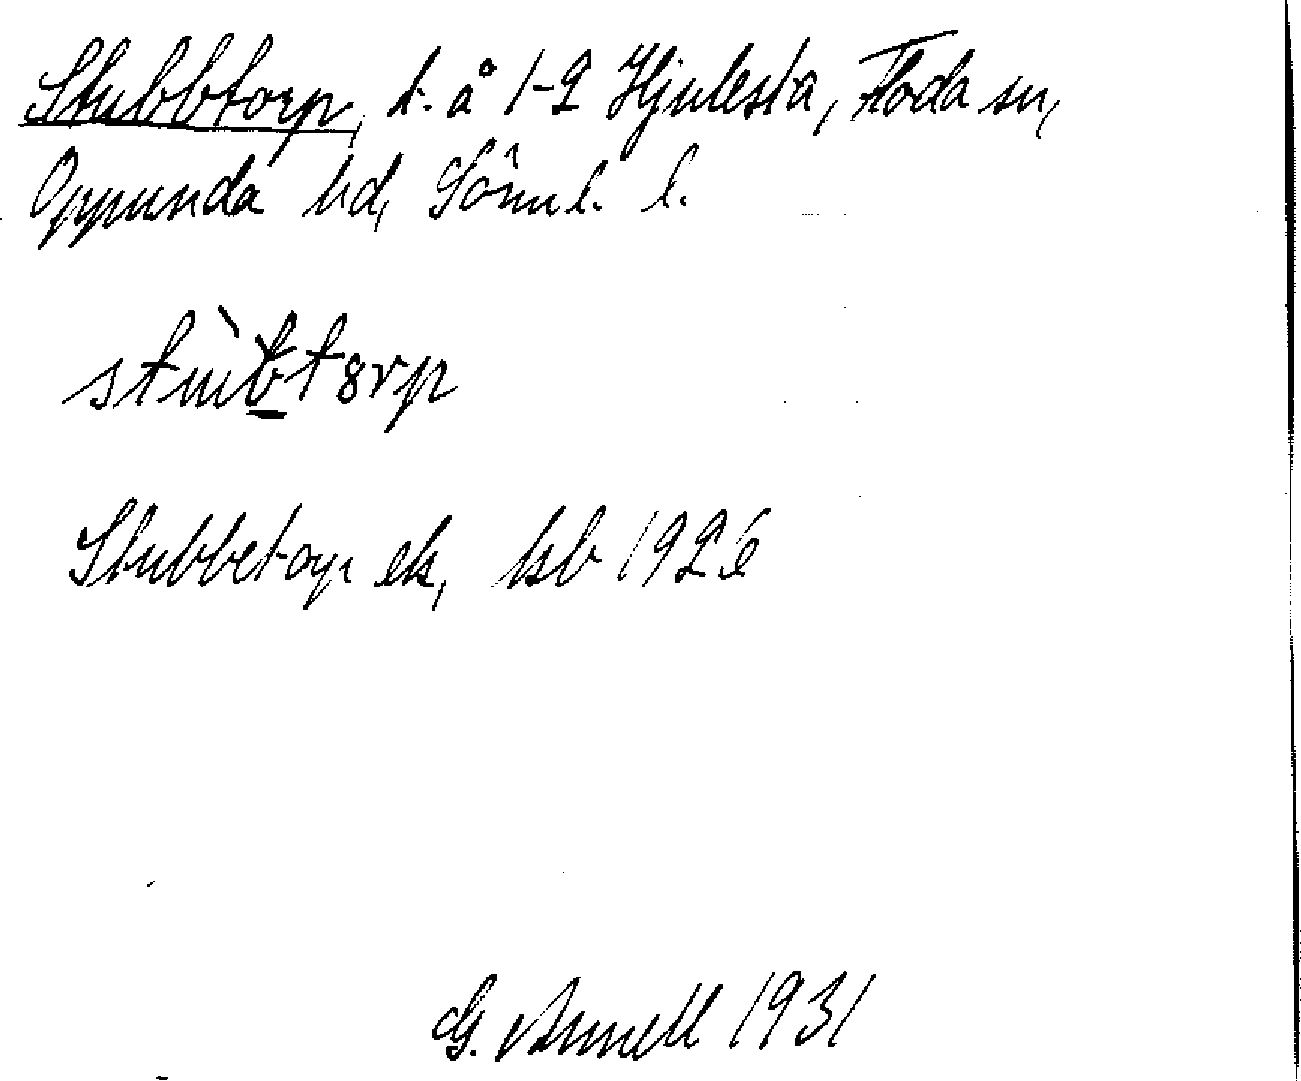 Stubbtorp, t. å 1-2 Hjulesta, Floda sn,
Oppunda hd, Söml. l.
stùbt8rp
Stubbetorp ek, kb 1926
G. Arnell 1931